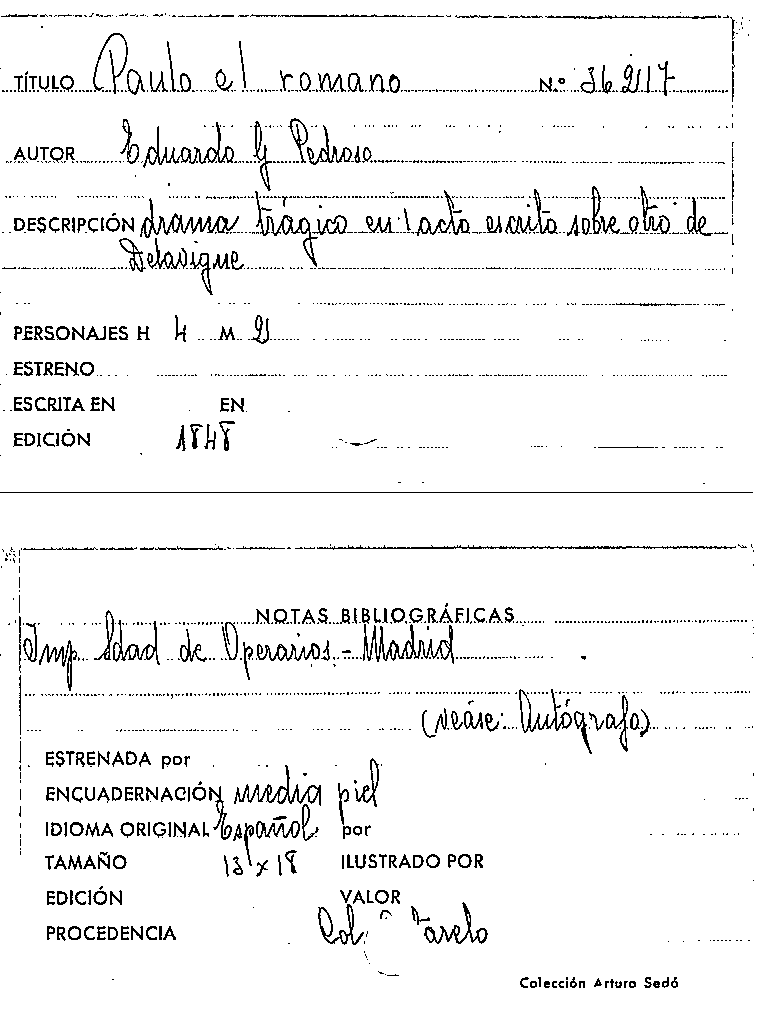 TÍTULO Paulo el romano N.º 36217
AUTOR Eduardo G Pedroso
DESCRIPCIÓN drama trágico en 1 acto escrito sobre otro de
Delavigne
PERSONAJES H 4 M 2
ESTRENO
ESCRITA EN EN
EDICIÓN 1848
NOTAS BIBLIOGRÁFICAS
Imp Sdad de Operarios - Madrid
(veáse: Autógrafo)
ESTRENADA por
ENCUADERNACIÓN media piel
IDIOMA ORIGINAL Español por
TAMAÑO 13 x 18 ILUSTRADO POR
EDICIÓN VALOR
PROCEDENCIA Col
Colección Arturo Sedó